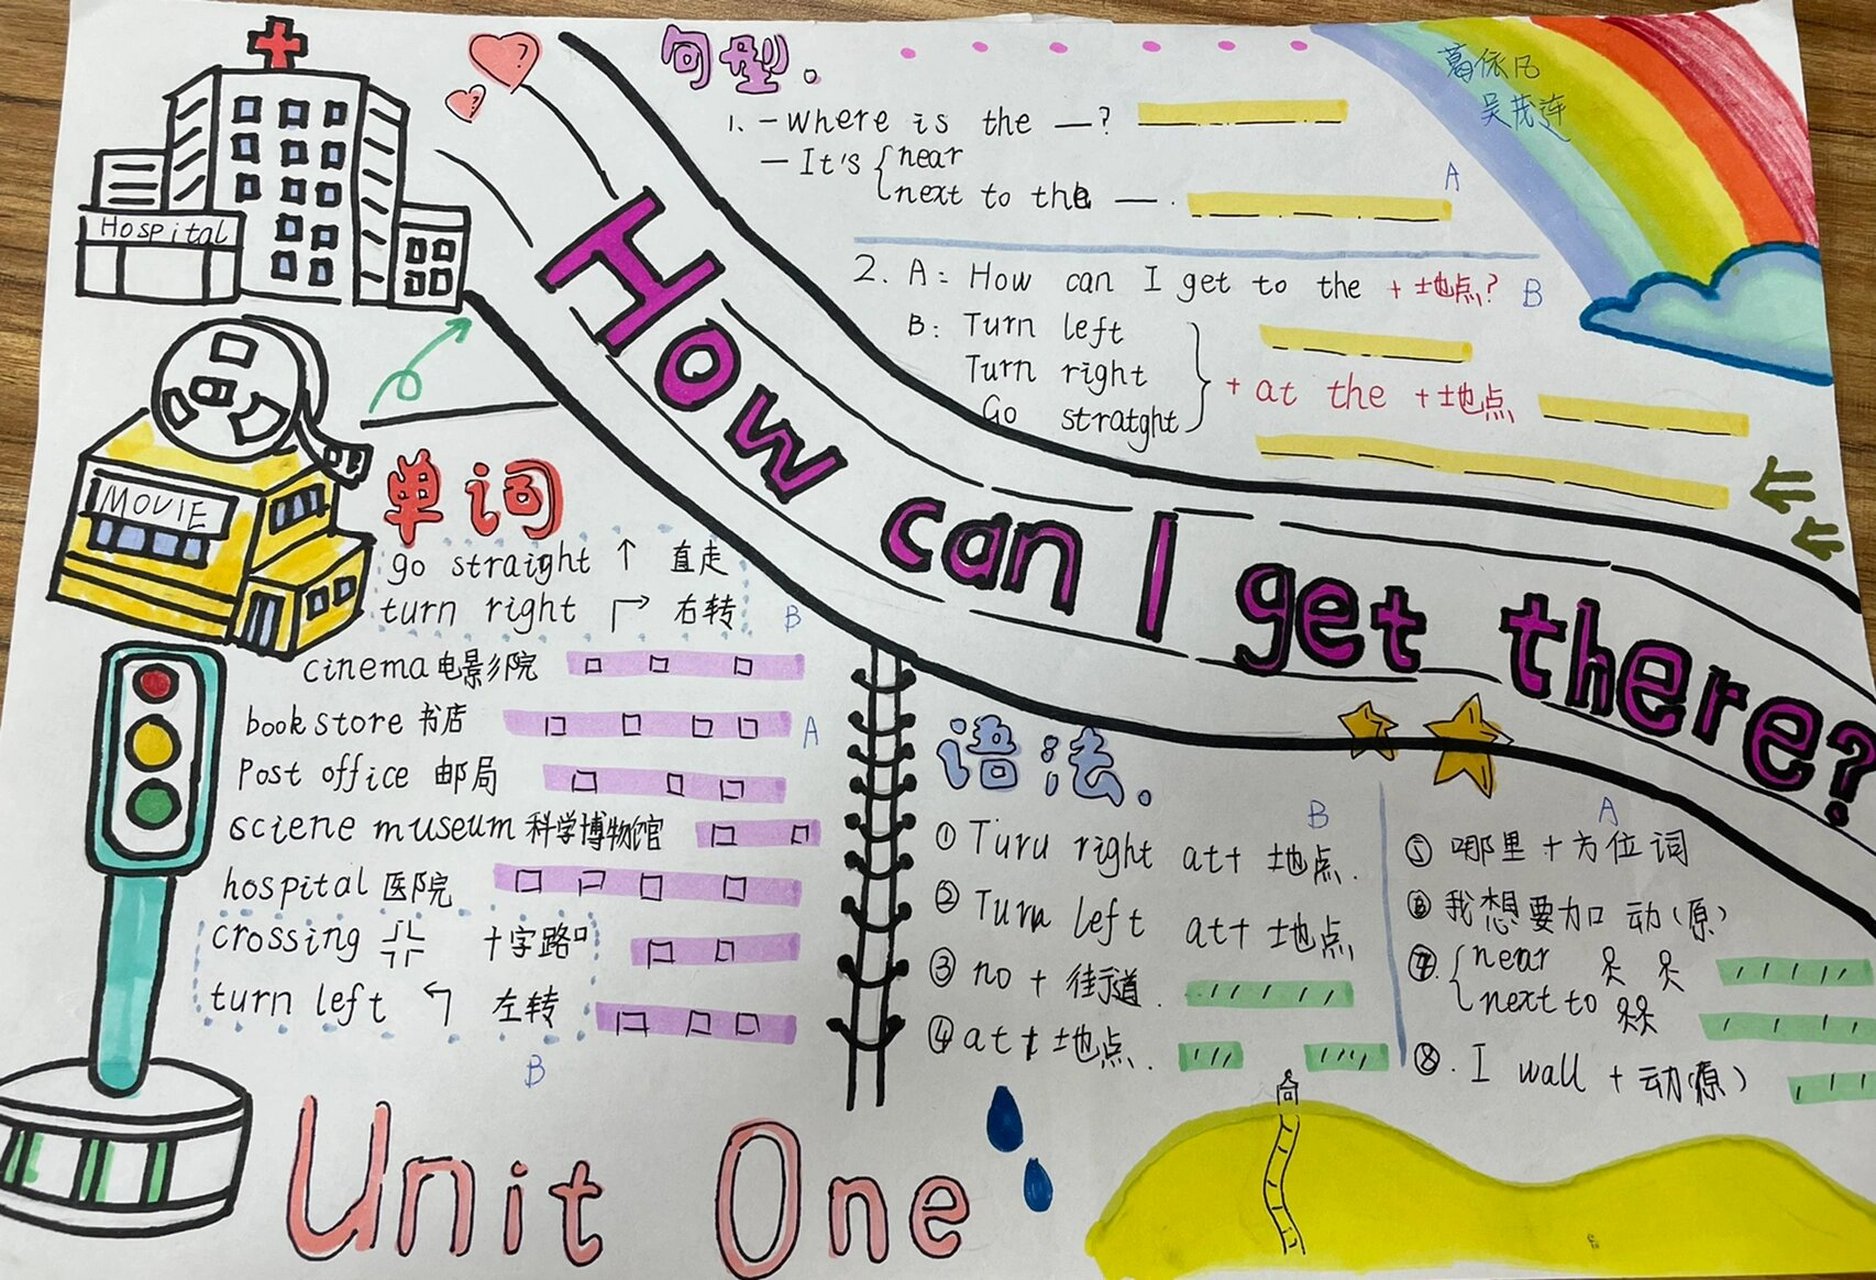 句型。
葛依凡
吴茂莲
1. - where is the — ?
- It's { near
next to the — .
A
2. A: How can I get to the + 地点? B
B: Turn left
Turn right
Go stratght
} + at the + 地点
Hospital
MOVIE
How can I get there?
单词
go straight ↑ 直走
turn right 右转
B
cinema 电影院
bookstore 书店
A
Post office 邮局
sciene museum 科学博物馆
hospital 医院
crossing 十字路口
turn left 左转
B
语法.
B
① Turu right at+ 地点.
② Turn left at+ 地点
③ no + 街道.
④ at+ 地点.
A
⑤ 哪里 + 方位词
⑥ 我想要加 动(原)
⑦. { near
next to
⑧. I wall + 动(原)
Unit One